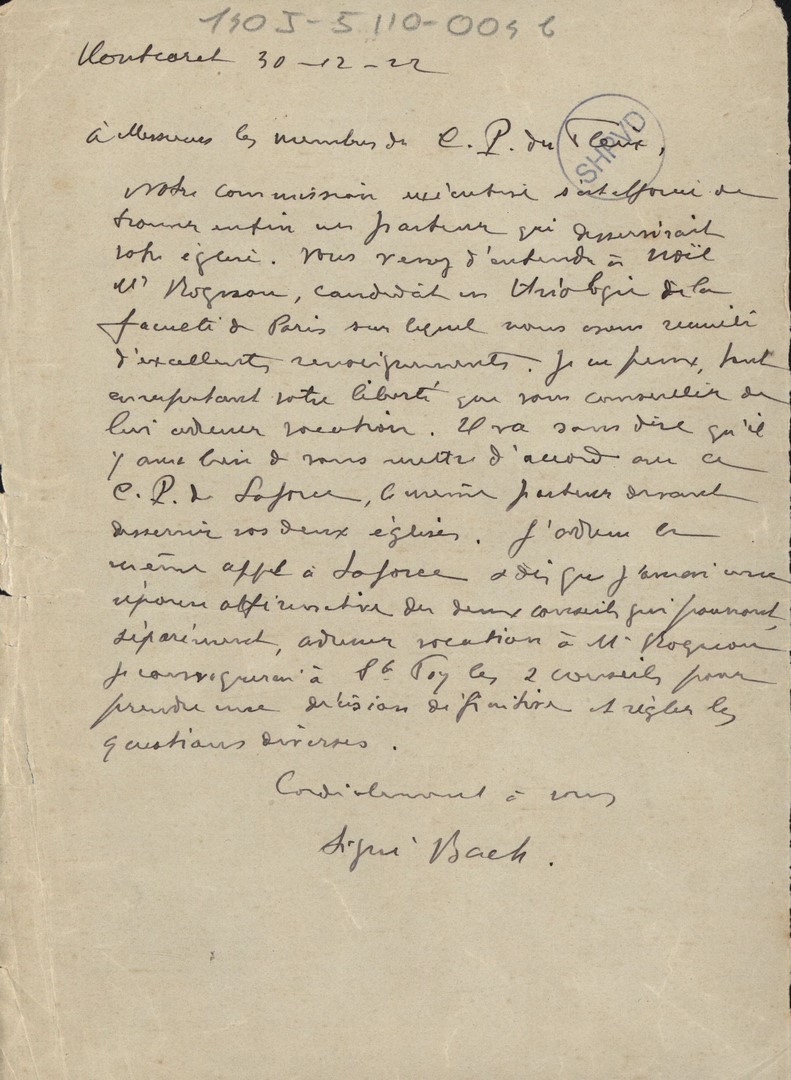 190J-5 110-009 6
Montcaret 30-12-22
SHPVD
à Messieurs les membres du C. P. du Fleix,
Notre commission exécutive s'est efforcée de
trouver enfin un pasteur qui desservirait
votre église. Vous venez d'entendre à Noël
Mr , candidat en théologie de la
faculté de Paris sur lequel nous avons recueilli
d'excellents renseignements. Je ne peux, tout
en respectant votre liberté que vous conseiller de
lui adresser vocation. Il va sans dire qu'il
y aura lieu de vous mettre d'accord avec ce
C. P. de Laforce, le même pasteur devant
desservir vos deux églises. J'adresse le
même appel à Laforce et dès que j'aurai une
réponse affirmative des deux conseils qui pourront,
séparément, adresser vocation à Mr
je convoquerai à Ste Foy les 2 conseils pour
prendre une décision définitive et régler les
questions diverses.
Cordialement à vous
Signé Bach.